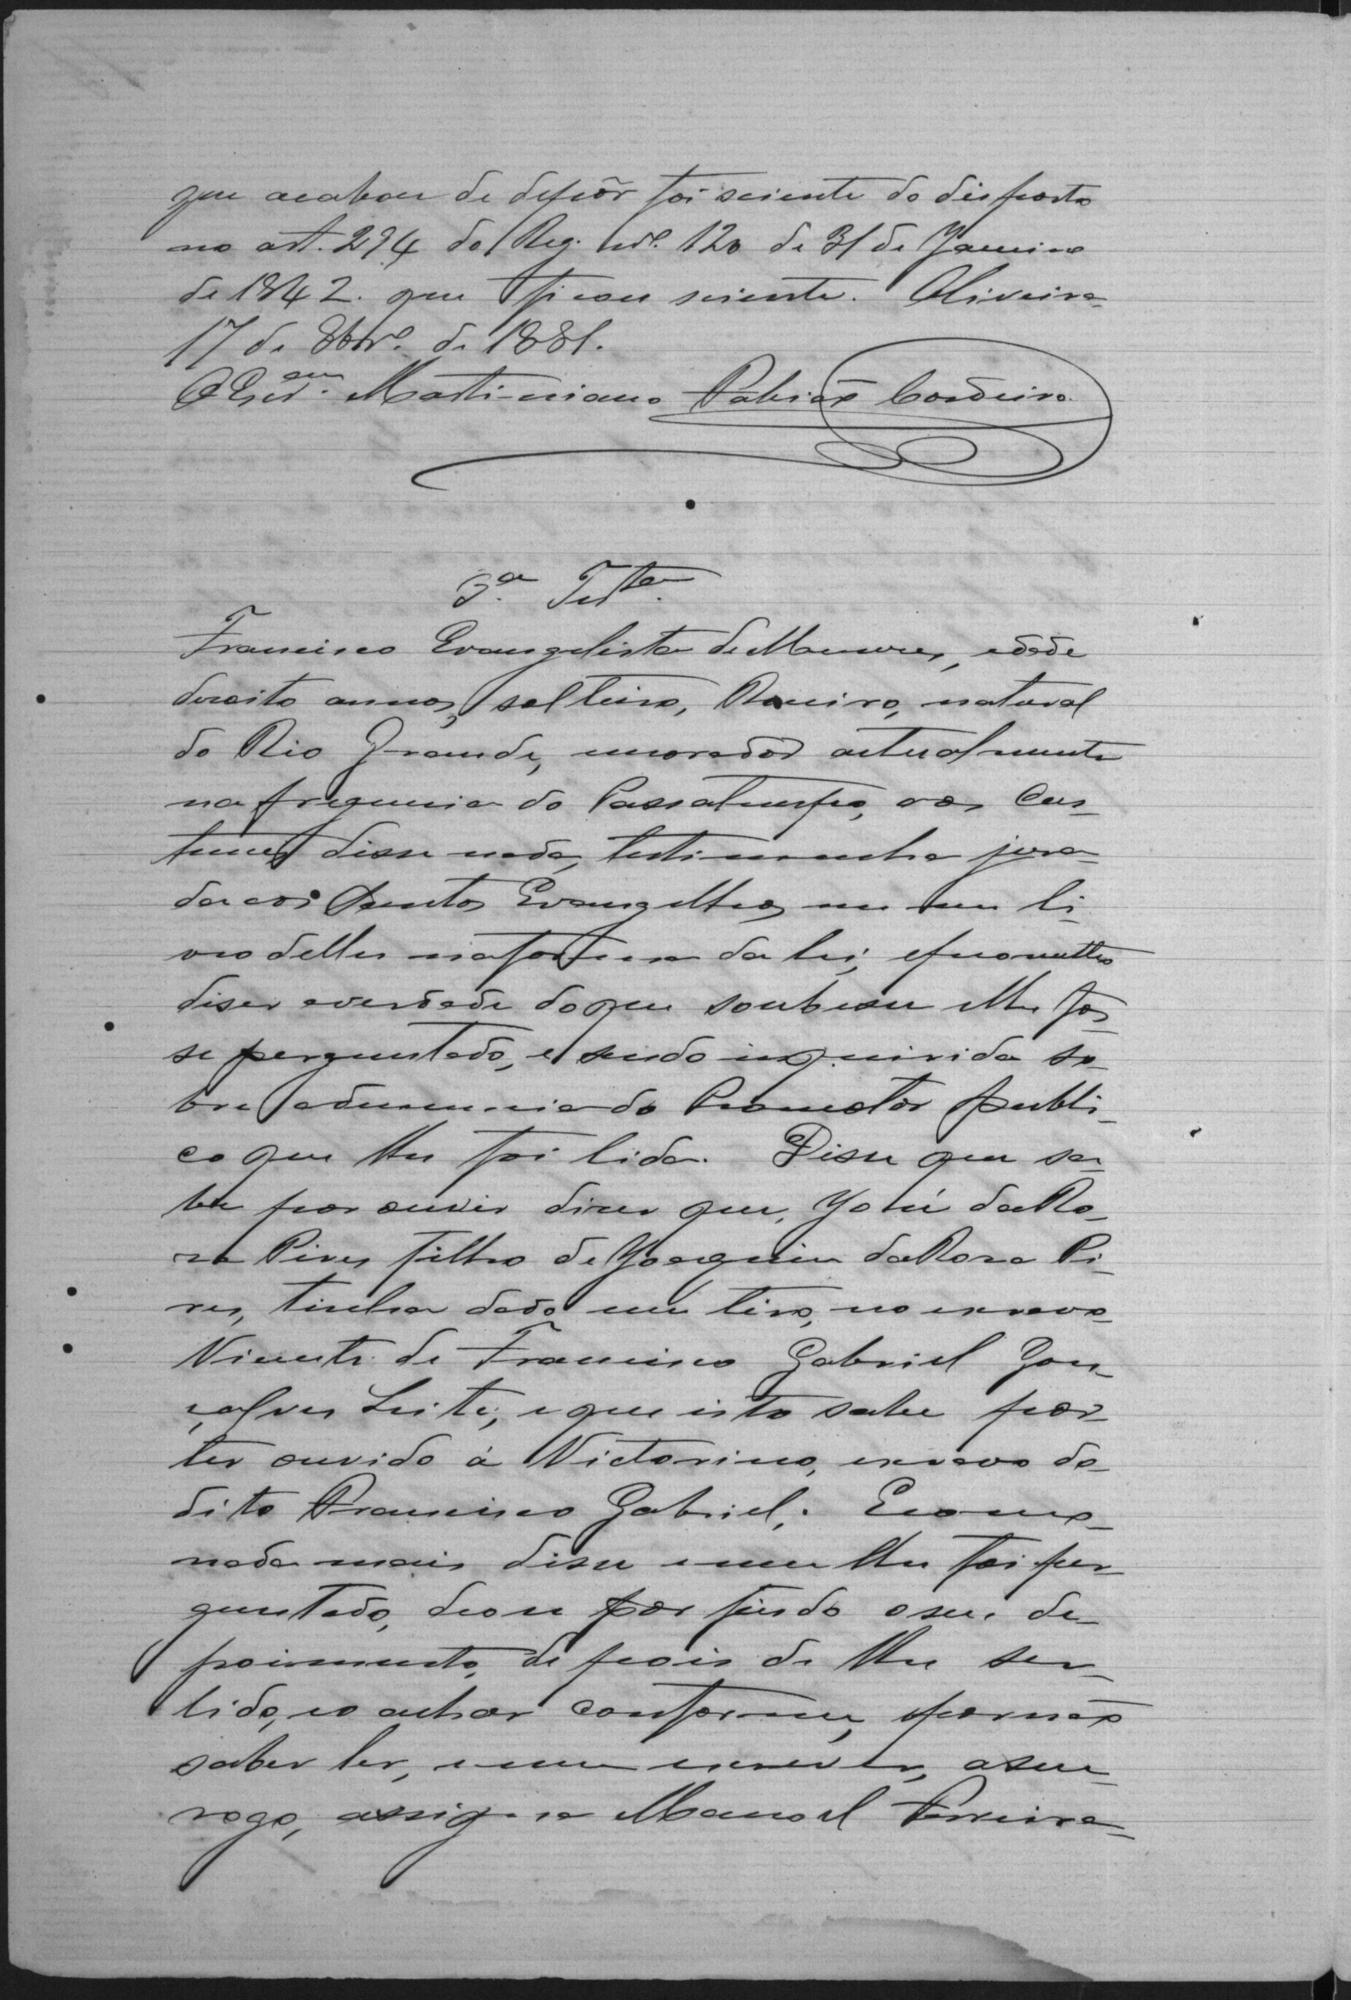 que acabou de depôr foi sciente do disposto
no art. 294 do Reg. nº. 120 de 31 de Janeiro
de 1842. que ficou sciente. Oliveira
17 de 8brº. de 1881.
O Escram. Martiniano Cordeiro
3ª Testa.
Francisco Evangelista de Menezes, edade
desoito annos, solteiro, natural
do Rio Grande, morador actualmente
na freguesia do Passatempo, aos cos-
tumes disse nada, testimunha jura-
da aos Santos Evangelhos em um li-
vro delles na forma da lei, e prometteo
diser averdade do que soubesse e lhe fos-
se perguntado, e sendo inquirida so-
bre a denuncia do Promotor publi-
co que lhe foi lida. Disse que sa-
be por ouvir diser que, José da Ro-
sa Pires filho de Joaquim da Rosa Pi-
res, tinha dado um tiro, no escravo
Vicente de Francisco Gabriel Gon-
çalves Leite, e que isto sabe por
ter ouvido á Victorino, escravo do
dito Francisco Gabriel. E como
nada mais disse e nem lhe foi per-
guntado, deo-se por findo o seu de-
poimento, depois de lhe ser
lido, e o achar conforme, e por não
saber ler, e nem escrever, a seu
rogo, assigna Manoel Ferreira